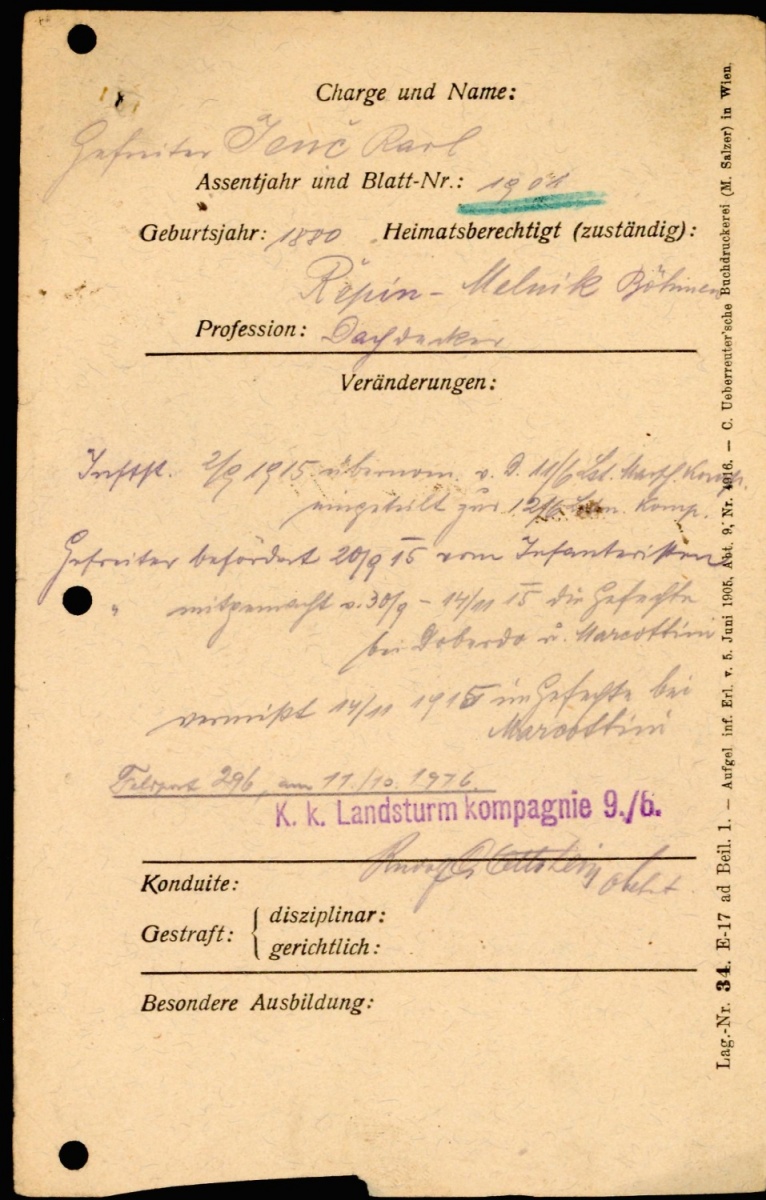 Charge und Name:
Gefreiter Jenč Karl
Assentjahr und Blatt-Nr.: 1901
Geburtsjahr: 1880 Heimatsberechtigt (zuständig):
Řepin - Melnik Böhmen
Profession: Dachdecker
Veränderungen:
2/9 1915 übernom. v. d. 11/6 Lst. Marsch. Komp.
eingeteilt zur 12/6 Komp.
Gefreiter befördert 20/9 15 vom Infanteristen
" mitgemacht v. 30/9 - 14/11 15 die Gefechte
bei Doberdo u. Marcottini
vermißt 14/11 1915 im Gefechte bei
Marcottini
Feldpost 296, am 11./10. 1916.
K. k. Landsturmkompagnie 9./6.
Oblt.
Konduite:
Gestraft: { disziplinar:
gerichtlich:
Besondere Ausbildung:
Lag.-Nr. 34. E-17 ad Beil. 1. — Aufgel. inf. Erl. v. 5. Juni 1905, Abt. 9, Nr. 4916. — C. Ueberreuter'sche Buchdruckerei (M. Salzer) in Wien.